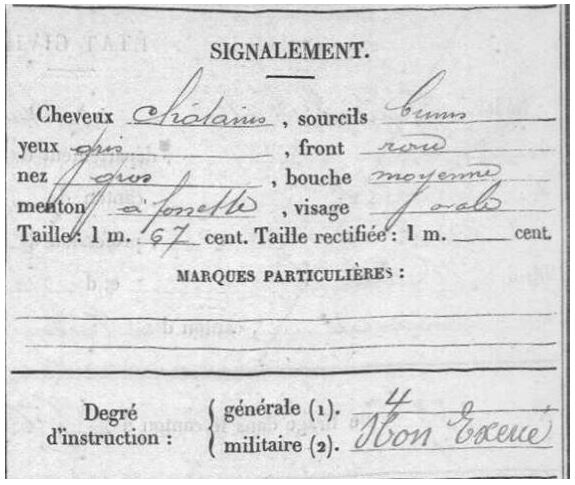 SIGNALEMENT.
Cheveux châtains, sourcils bruns
yeux gris, front rond
nez gros, bouche moyenne
menton à fossette, visage ovale
Taille : 1 m. 67 cent. Taille rectifiée : 1 m. cent.
MARQUES PARTICULIÈRES :
Degré d'instruction :
générale (1). 4
militaire (2). Non Exercé